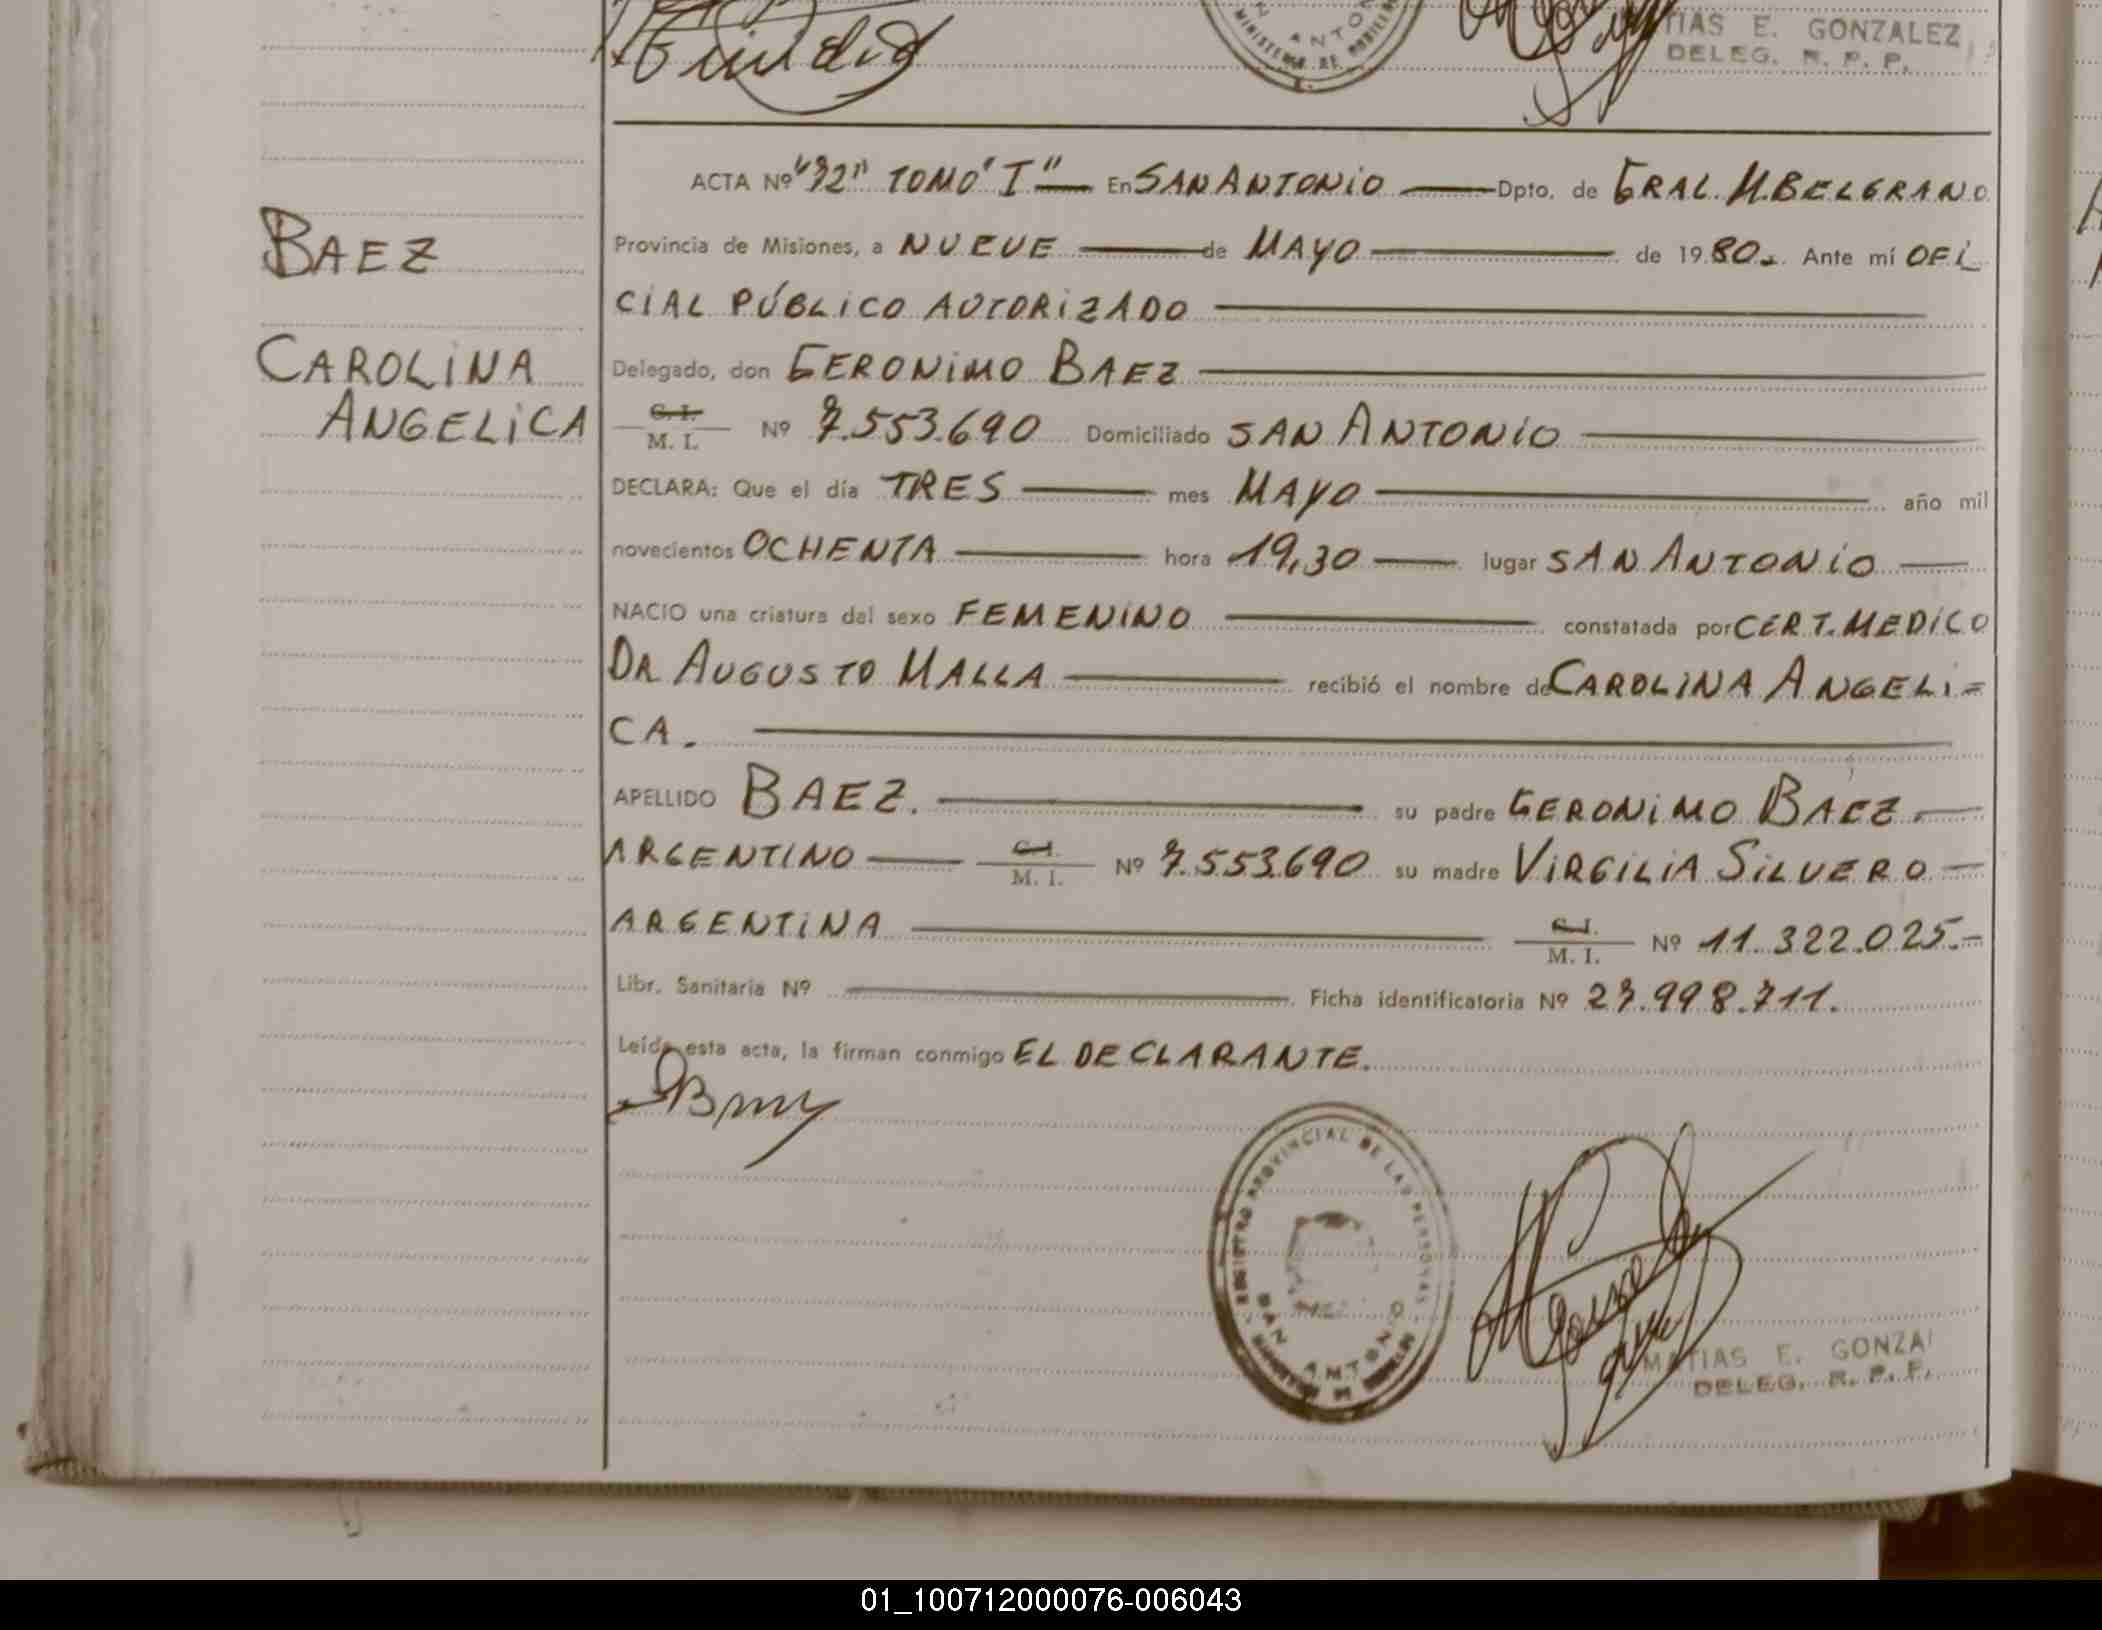 TIAS E. GONZALEZ
DELEG. R. P. P.
ACTA Nº "72" TOMO "I" En SAN ANTONIO Dpto. de GRAL. M. BELGRANO
Provincia de Misiones, a NUEVE de MAYO de 1980. Ante mí OFI
CIAL PÚBLICO AUTORIZADO
BAEZ
CAROLINA
ANGELICA
Delegado, don GERONIMO BAEZ
C. I.
M. I. Nº 7.553.690 Domiciliado SAN ANTONIO
DECLARA: Que el día TRES mes MAYO año mil
novecientos OCHENTA hora 19,30 lugar SAN ANTONIO
NACIO una criatura del sexo FEMENINO constatada por CERT. MEDICO
DR AUGUSTO MALLA recibió el nombre de CAROLINA ANGELI=
CA.
APELLIDO BAEZ. su padre GERONIMO BAEZ
ARGENTINO C. I. M. I. Nº 7.553.690 su madre VIRGILIA SILVERO
ARGENTINA C. I. M. I. Nº 11.322.025.-
Libr. Sanitaria Nº Ficha identificatoria Nº 27.998.711.
Leída esta acta, la firman conmigo EL DECLARANTE.
REGISTRO PROVINCIAL DE LAS PERSONAS
SAN ANTONIO
MATIAS E. GONZA
DELEG. R. P. P.
01_100712000076-006043